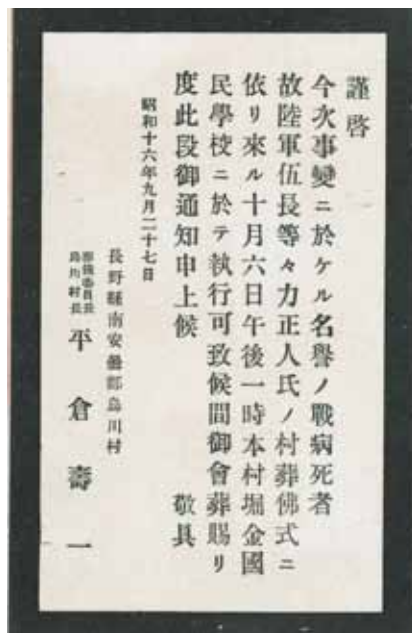 謹啓
今次事變ニ於ケル名譽ノ戰病死者
故陸軍伍長等々力正人氏ノ村葬佛式ニ
依リ來ル十月六日午後一時本村堀金國
民學校ニ於テ執行可致候間御會葬賜リ
度此段御通知申上候　敬具
昭和十六年九月二十七日
長野縣南安曇郡烏川村
葬儀委員長
烏川村長
平倉壽一